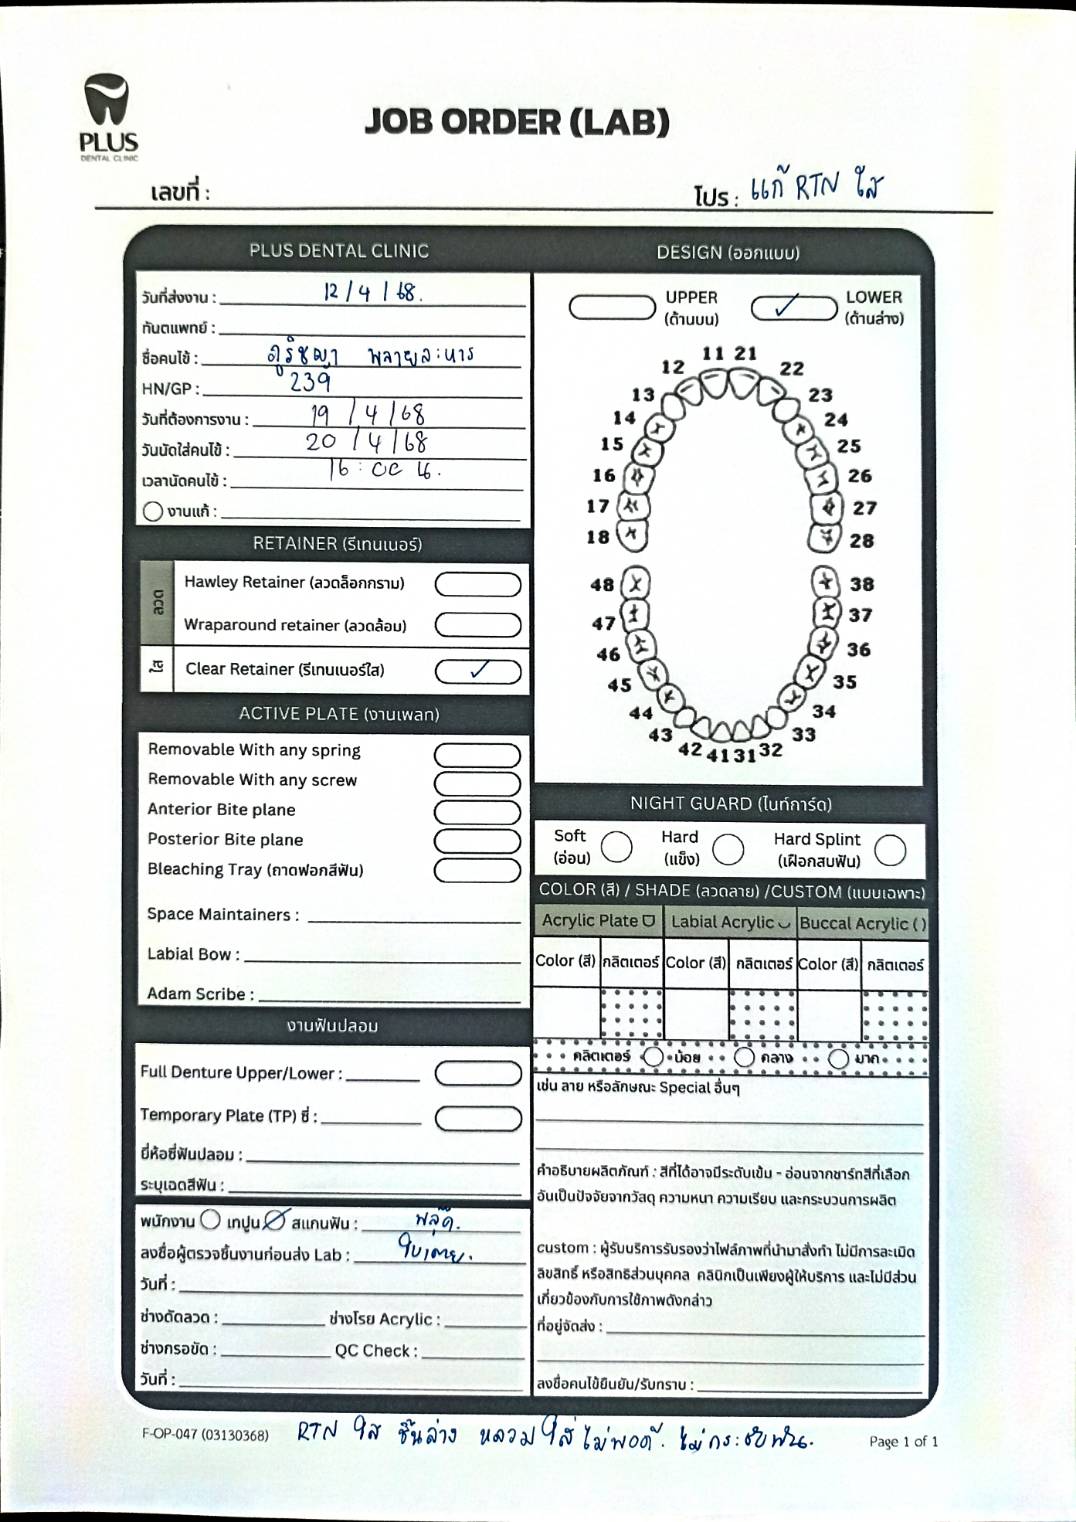 PLUS
DENTAL CLINIC
JOB ORDER (LAB)
เลขที่ :
โปร : แก้ RTN ใส
PLUS DENTAL CLINIC
วันที่ส่งงาน : 12 / 4 / 68.
ทันตแพทย์ :
ชื่อคนไข้ : ภูริชญา
HN/GP : 239
วันที่ต้องการงาน : 19 / 4 / 68
วันนัดใส่คนไข้ : 20 / 4 / 68
เวลานัดคนไข้ : 16 : 00 น.
งานแก้ :
RETAINER (รีเทนเนอร์)
ลวด
Hawley Retainer (ลวดล็อกกราม)
Wraparound retainer (ลวดล้อม)
ใส
Clear Retainer (รีเทนเนอร์ใส) ✓
ACTIVE PLATE (งานเพลท)
Removable With any spring
Removable With any screw
Anterior Bite plane
Posterior Bite plane
Bleaching Tray (ถาดฟอกสีฟัน)
Space Maintainers :
Labial Bow :
Adam Scribe :
งานฟันปลอม
Full Denture Upper/Lower :
Temporary Plate (TP) ซี่ :
ยี่ห้อซี่ฟันปลอม :
ระบุเฉดสีฟัน :
พนักงาน เทปูน สแกนฟัน :
ลงชื่อผู้ตรวจชิ้นงานก่อนส่ง Lab : ใบเตย.
วันที่ :
ช่างดัดลวด : ช่างโรย Acrylic :
ช่างกรอขัด : QC Check :
วันที่ :
DESIGN (ออกแบบ)
UPPER
(ด้านบน)
✓ LOWER
(ด้านล่าง)
11 21
12 22
13 23
14 24
15 25
16 26
17 27
18 28
48 38
47 37
46 36
45 35
44 34
43 33
42 41 31 32
NIGHT GUARD (ไนท์การ์ด)
Soft
(อ่อน)
Hard
(แข็ง)
Hard Splint
(เฝือกสบฟัน)
COLOR (สี) / SHADE (ลวดลาย) /CUSTOM (แบบเฉพาะ)
Acrylic Plate Labial Acrylic Buccal Acrylic ( )
Color (สี) กลิตเตอร์ Color (สี) กลิตเตอร์ Color (สี) กลิตเตอร์
กลิตเตอร์ น้อย กลาง มาก
เช่น ลาย หรือลักษณะ Special อื่นๆ
คำอธิบายผลิตภัณฑ์ : สีที่ได้อาจมีระดับเข้ม - อ่อนจากชาร์ทสีที่เลือก
อันเป็นปัจจัยจากวัสดุ ความหนา ความเรียบ และกระบวนการผลิต
custom : ผู้รับบริการรับรองว่าไฟล์ภาพที่นำมาสั่งทำ ไม่มีการละเมิด
ลิขสิทธิ์ หรือสิทธิส่วนบุคคล คลินิกเป็นเพียงผู้ให้บริการ และไม่มีส่วน
เกี่ยวข้องกับการใช้ภาพดังกล่าว
ที่อยู่จัดส่ง :
ลงชื่อคนไข้ยืนยัน/รับทราบ :
F-OP-047 (03130368)
RTN ใส ชิ้นล่าง หลวม ใส่ไม่พอดี. ไม่กระชับฟัน.
Page 1 of 1